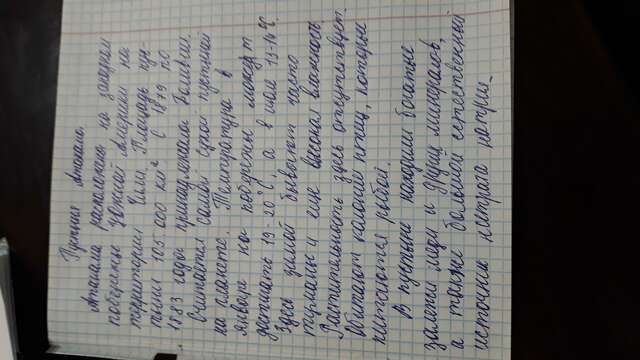 Пустыня Атакама.
Атакама расположена на западном
побережье Южной Америки на
территории Чили. Площадь пус-
тыни 105 000 км² С 1879 по
1883 годы принадлежала Боливии.
Считается самой сухой пустыней
на планете. Температура в
январе на побережье может
достигать 19-20°С, а в июле 13-14°С
Здесь зимой бывают часто
туманы и еще высокая влажность
Растительность здесь отсутствует.
Обитают колонии птиц, которые
питаются рыбой.
В пустыне находили богатые
залежи меди и других минералов,
а также больший естественный
источник нитрата натрия